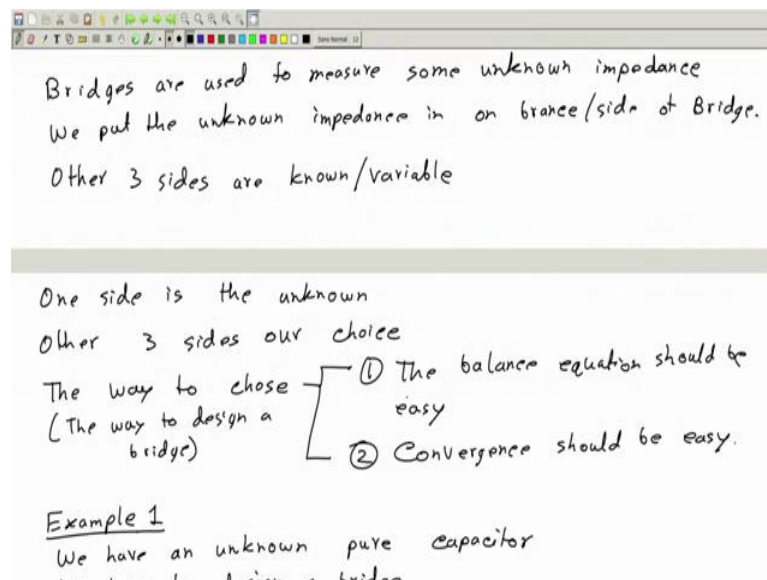 Sans Normal 12
Bridges are used to measure some unknown impedance
We put the unknown impedence in on brance/side of Bridge.
Other 3 sides are known/variable
One side is the unknown
Other 3 sides our choice
The way to chose
(The way to design a
bridge)
① The balance equation should be
easy
② Convergence should be easy.
Example 1
We have an unknown pure capacitor
design a bridge